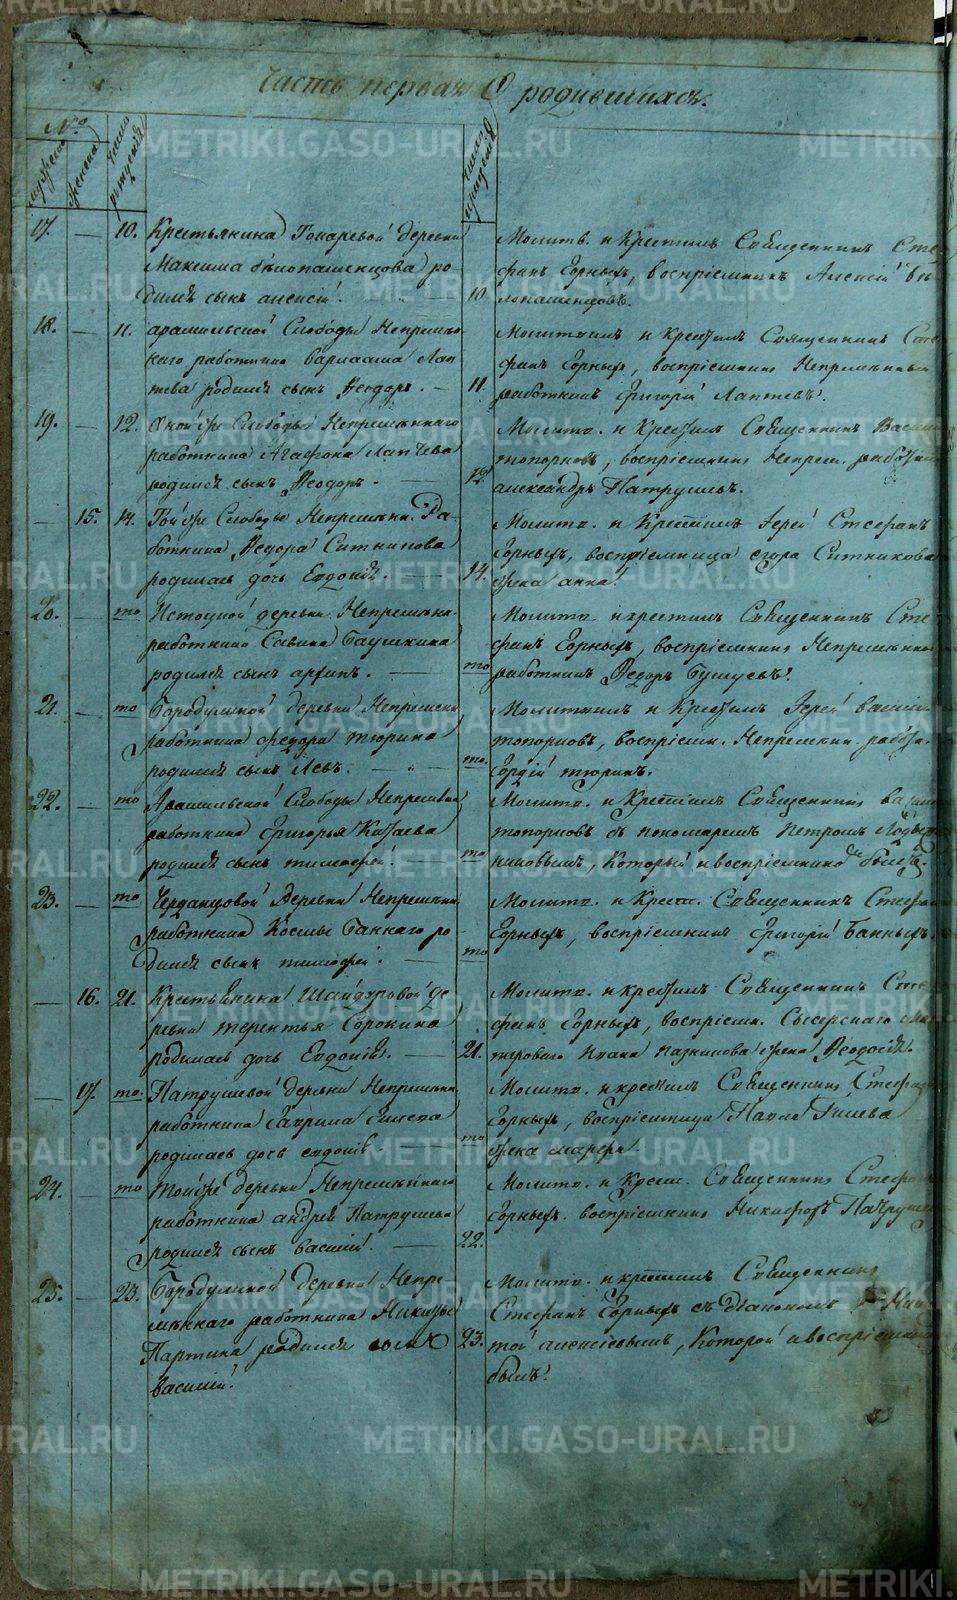 Часть первая О родившихся.
№
мужеска
женска
Число рождения
Число крещения
17. — 10. Крестьянина Токаревой деревни
Максима Белопашенцова ро-
дился сынъ алексiй.
10. Молитв. и Крестилъ Священникъ Сте-
фанъ Горныхъ, воспрiемникъ Алексiй Бе-
лопашенцовъ.
18. — 11. арамильской Слободы Непремѣн-
наго работника варлаама Лап-
тева родился сынъ Ѳеодоръ. —
11. Молитвилъ и Крестилъ Священникъ Сте-
фанъ Горныхъ, воспрiемникъ Непремѣнный
работникъ Григорiй Лаптевъ.
19. — 12. Оной же Слободы Непремѣннаго
работника Агафона Лаптева
родился сынъ Ѳеодоръ. —
12. Молитв. и Крестилъ Священникъ Васил
топорковъ, воспрiемникъ Непрем. работни
александръ Патрушевъ.
— 15. 14. Той же Слободы Непремѣнн. Ра-
ботника Ѳедора Ситникова
родилась дочь Евдокiя. —
14. Молитв. и Крестилъ Iерей Стефанъ
Горныхъ, воспрiемница егора Ситникова
жена анна.
20. — то Истошной деревни Непремѣнн.
работника Саввина
родился сынъ —
то Молитв. и крестилъ Священникъ Сте-
фанъ Горныхъ, воспрiемникъ Непремѣнной
работникъ Ѳедоръ
21. — то Бородулиной деревни Непремѣнн.
работника федора тюрина
родился сынъ Левъ. —
то. Молитвилъ и Крестилъ Iерей васил
топорковъ, воспрiемн. Непремѣнн. рабо.
Гордiй тюринъ.
22. — то Арамильской Слободы Непремѣнн
работника Григорья Китаева
родился сынъ тимофей.
то Молитв. и Крестилъ Священникъ васил
топорковъ съ пономаремъ Петромъ
который и воспрiемникомъ былъ.
23. — то Черданцовой Деревни Непремѣнн.
работника Космы Баннаго ро-
дился сынъ тимофей. —
то Молитв. и Крест. Священникъ Стефан
Горныхъ, воспрiемникъ Григорiй Банныхъ.
— 16. 21. Крестьянина Шайдуровой де-
ревни терентья Сорокина
родилась дочь Евдокiя. —
21. Молитв. и крестилъ Священникъ Сте-
фанъ Горныхъ, воспрiемн. Сысерскаго ма-
стероваго жена Ѳеодосiя.
— 17. то. Патрушевой деревни Непремѣнн.
работника Гаврила
родилась дочь евдокiя.
то Молитв. и крестилъ Священникъ Стефан
Горныхъ, воспрiемница Павла
жена
24. — то Тойже деревни Непремѣннаго
работника андрея Патрушева
родился сынъ василiй. —
22. Молитв. и Крест. Священникъ Стефан
Горныхъ. воспрiемникъ Никифоръ Патруше
25. — 23. Бородулиной деревни Непре-
мѣннаго работника
Паркина родился сынъ
василiй.
23. Молитв. и крестилъ Священникъ
Стефанъ Горныхъ съ дiакономъ Ники-
той алексiевымъ, Которой и воспрiемник
былъ.
METRIKI.GASO-URAL.RU